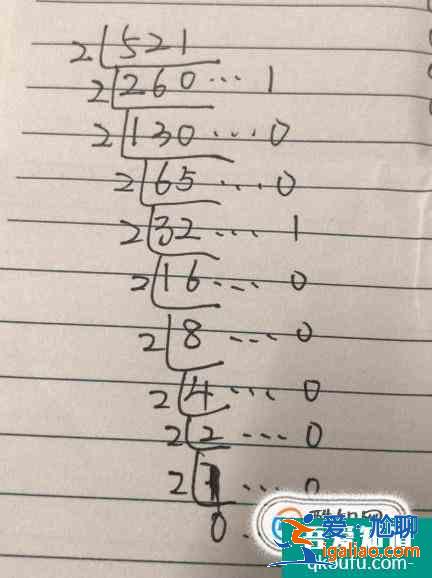 2 521
2 260 ... 1
2 130 ... 0
2 65 ... 0
2 32 ... 1
2 16 ... 0
2 8 ... 0
2 4 ... 0
2 2 ... 0
2 1 ... 0
0
爱·尬聊
igaliao.com
qkoufu.com